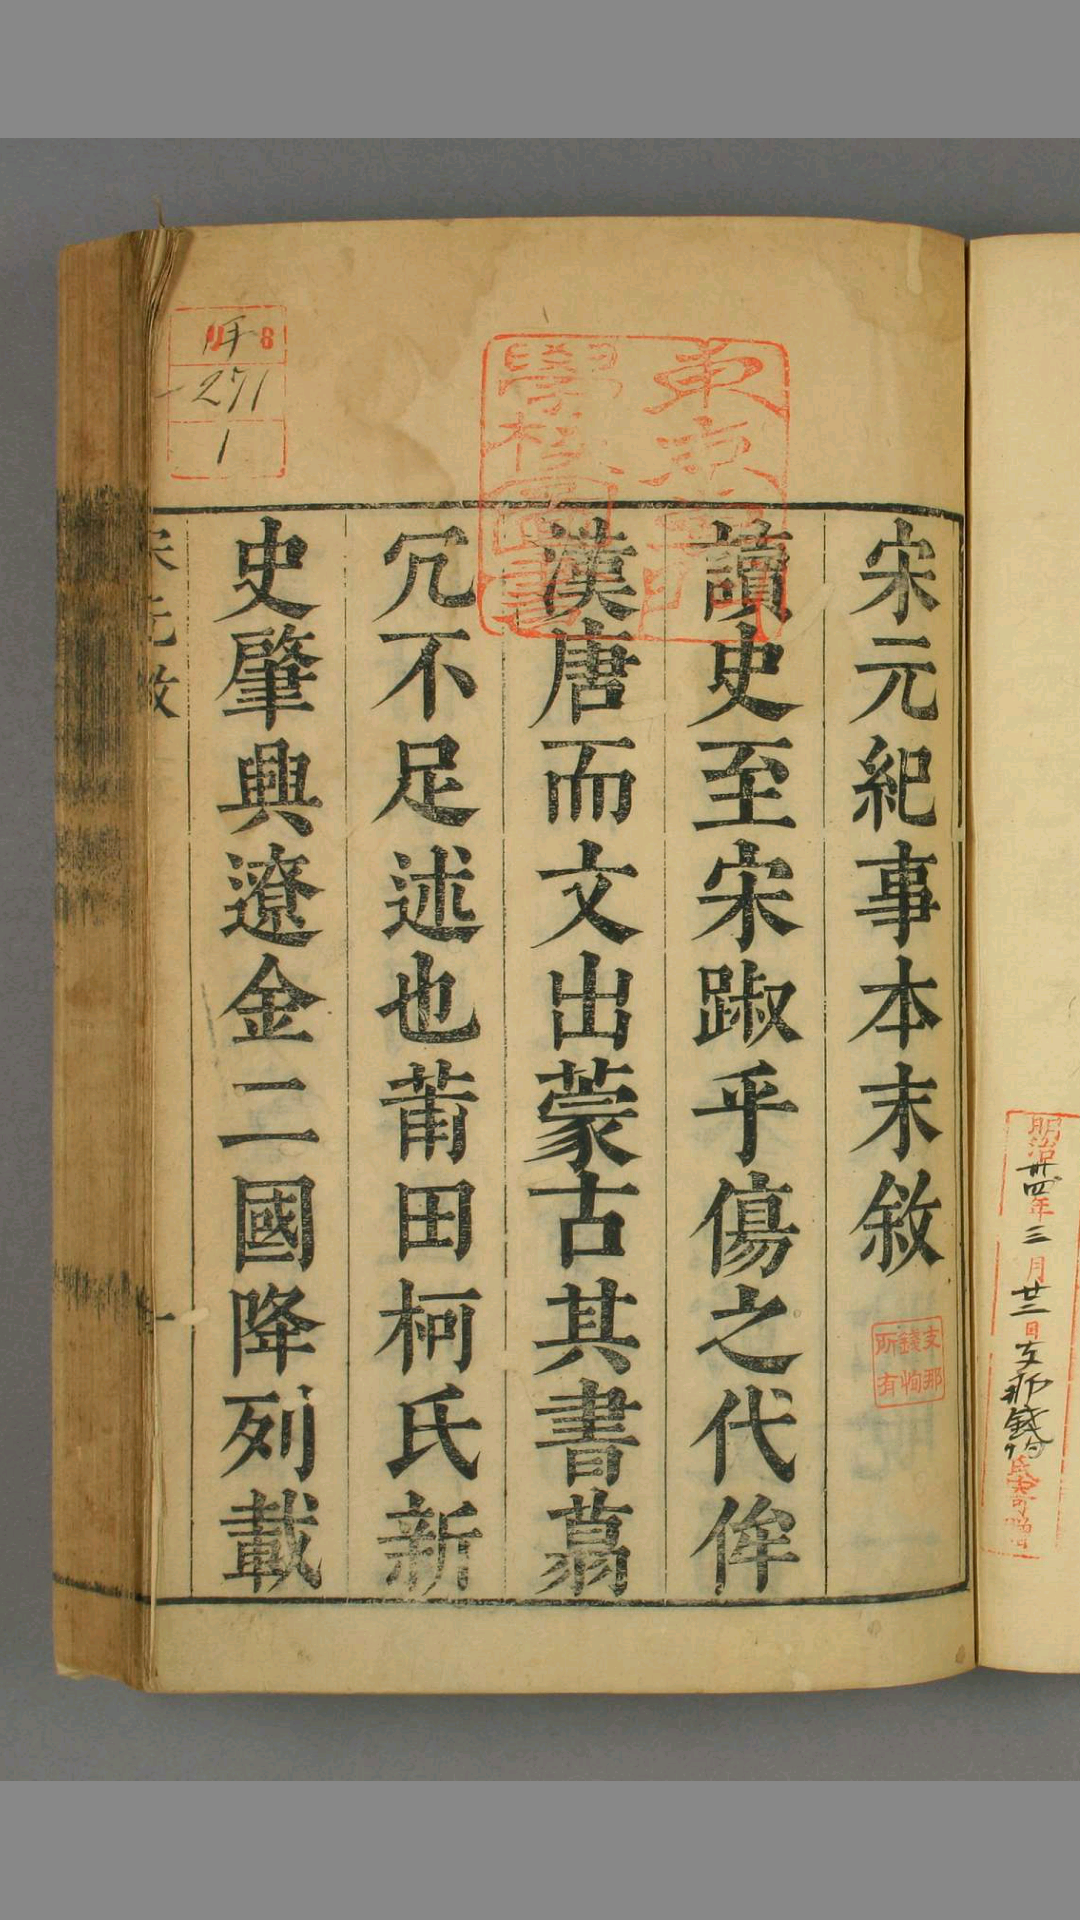 宋元紀事本末敘
讀史至宋踧乎傷之代侔
漢唐而文出蒙古其書蒻
冗不足述也莆田柯氏新
史肇興遼金二國降列載
宋元敘
一
東京專門
學校圖書
8
271
1
支那
錢恂
所有
明治卅四年三月廿二日支那錢恂氏寄贈